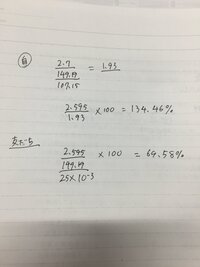 自
2.7
149.19
107.15
= 1.93
2.595
1.93
×100 = 134.46%
友だち
2.595
149.19
25×10⁻³
×100 = 69.58%